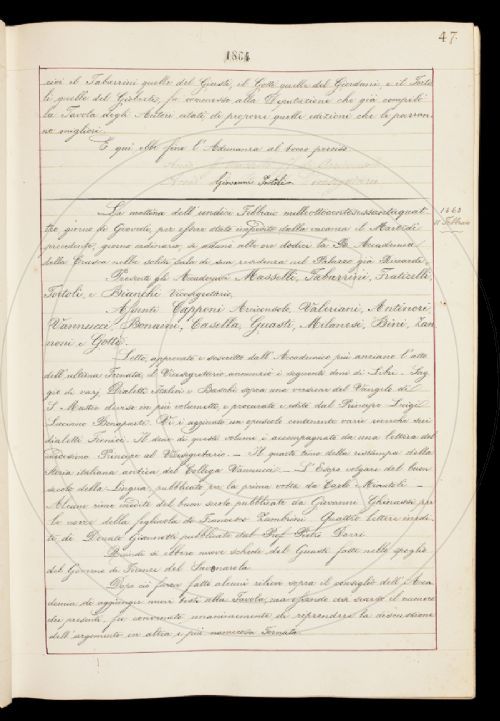 47
1864
così il Tabarrini quelle del Giusti, il Gotti quelle del Giordani, e il Torto
li quelle del Gioberti, fu commesso alla Deputazione che già compilò
la Tavola degli Autori citati di proporre quelle edizioni che le parran
no migliori.
E qui ebbe fine l'Adunanza al tocco preciso.
Giovanni Tortoli
La mattina dell'undici Febbraio milleottocentosessantaquat
tro giorno di Giovedì, per essere stato impedito dalla vacanza il Martedì
precedente, giorno ordinario, si adunò alle ore dodici la R. Accademia
della Crusca nella solita sala di sua residenza nel Palazzo già Riccardi.
1864
11 Febbraio
Presenti gli Accademici Masselli, Tabarrini, Fraticelli
Tortoli e Bianchi Vicesegretario,
Assenti Capponi Arciconsolo, Valeriani, Antinori
Vannucci, Bonaini, Casella, Guasti, Milanesi, Bini, Zan
noni e Gotti.
Letto, approvato e soscritto dall'Accademico più anziano l'atto
dell'ultima Tornata, il Vicesegretario annunziò i seguenti doni di Libri. Sag
gio di varj Dialetti Italici e Baschi sopra una versione del Vangelo di
S. Matteo divisa in più volumetti, e procurata e edita dal Principe Luigi
Luciano Bonaparte. Vi è aggiunto un opuscolo contenente varie ricerche sui
dialetti Finnici. Il dono di questi volumi è accompagnato da una lettera del
medesimo Principe al Vicesegretario — Il quarto tomo della ristampa della
Storia italiana antica del Collega Vannucci — L'Esopo volgare del buon
secolo della Lingua, pubblicato per la prima volta da Carlo Minutoli —
Alcune rime inedite del buon secolo pubblicate da Giovanni Ghinassi per
le nozze della figliuola di Francesco Zambrini. Quattro lettere inedi
te di Donato Giannotti pubblicate dal Prof. Pietro Ferri
Quindi si ebbero nuove schede del Guasti fatte nello spoglio
del Governo di Firenze del Savonarola
Dopo ciò furon fatti alcuni rilievi sopra il consiglio dell'Acca
demia di aggiunger nuovi testi alla Tavola, ma essendo assai scarso il numero
dei presenti, fu convenuto unanimamente di riprendere la discussione
dell'argomento in altra e più numerosa Tornata.